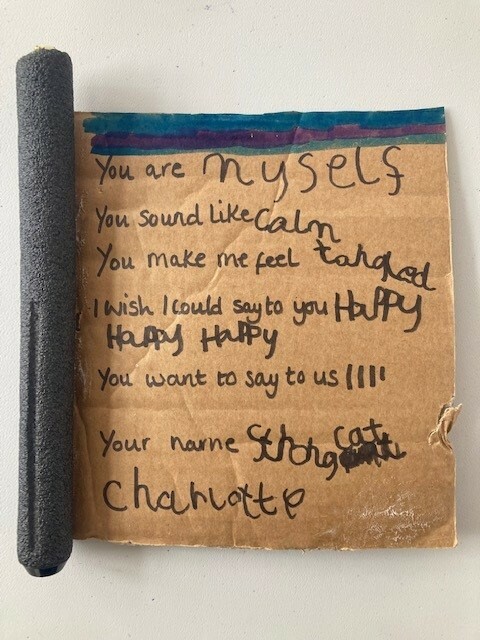 You are myself
You sound like calm
You make me feel tangled
I wish I could say to you Happy
Happy Happy
You want to say to us IIII
Your name Strong cat
Charlotte